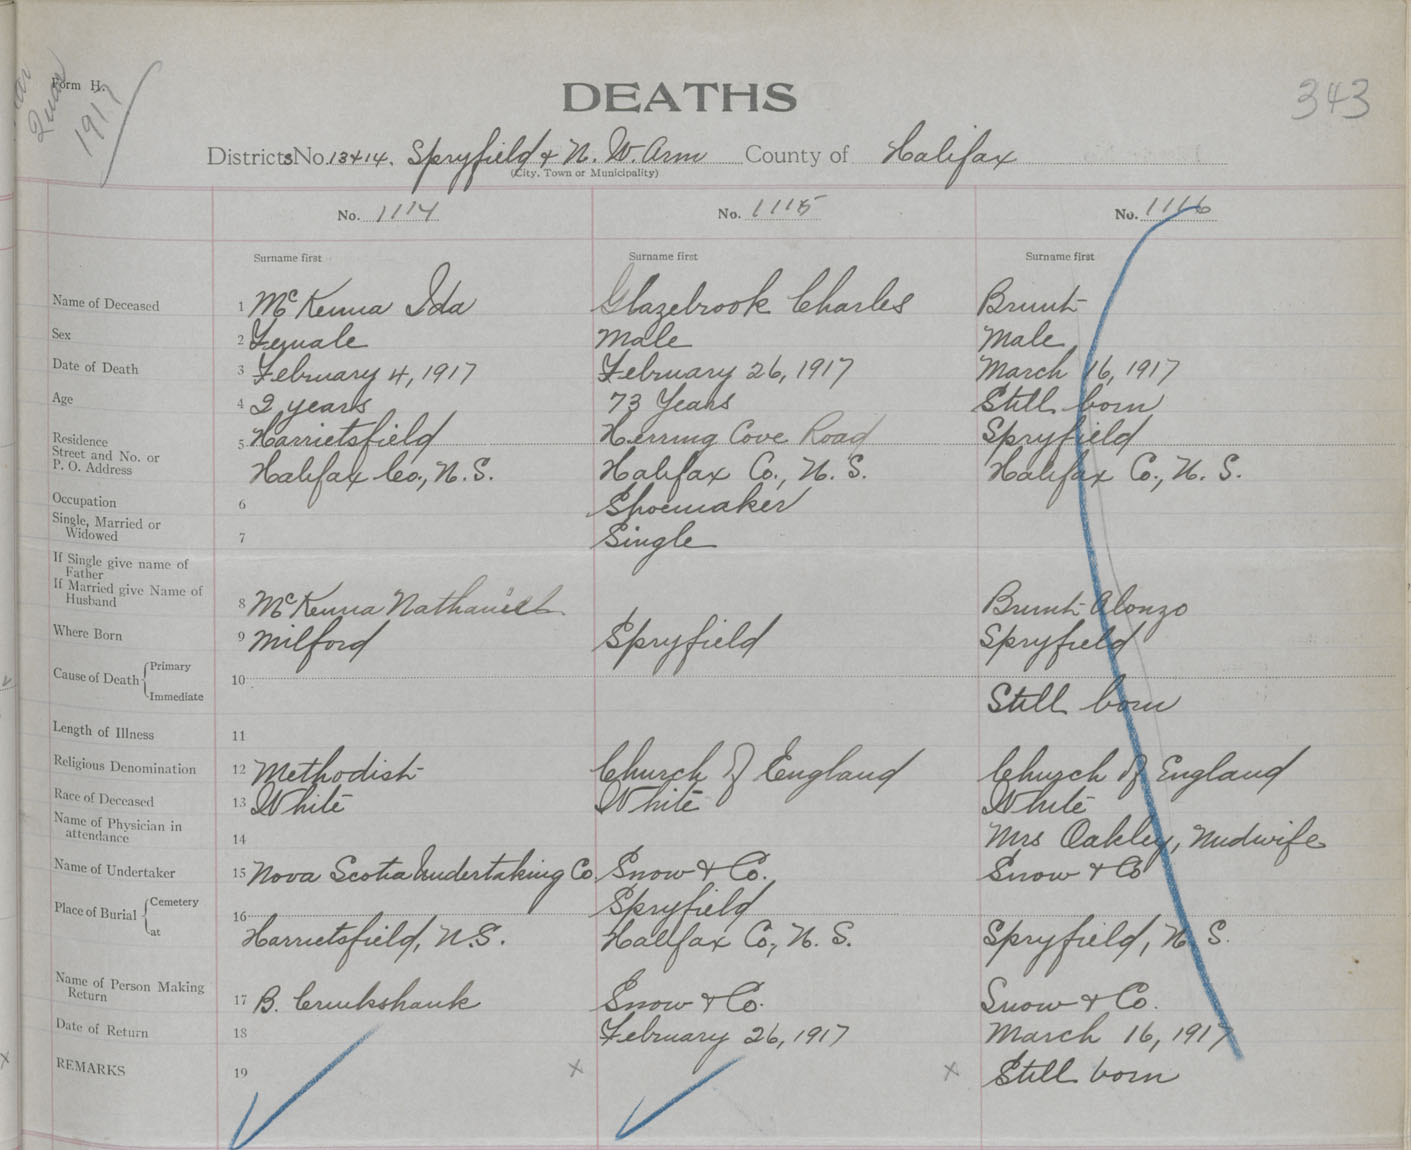 Form H.
1917
DEATHS
343
Districts No. 13+14. Spryfield + N. W. Arm County of Halifax
(City, Town or Municipality)
No. 1114 No. 1115 No. 1116
Surname first Surname first Surname first
Name of Deceased 1 McKenna Ida Glazebrook Charles Brunt
Sex 2 Female Male Male
Date of Death 3 February 4, 1917 February 26, 1917 March 16, 1917
Age 4 2 years 73 Years Still born
Residence 5 Harrietsfield Herring Cove Road Spryfield
Street and No. or
P. O. Address Halifax Co., N.S. Halifax Co., N. S. Halifax Co., N. S.
Occupation 6 Shoemaker
Single, Married or
Widowed 7 Single
If Single give name of
Father
If Married give Name of
Husband 8 McKenna Nathaniel Brunt Alonzo
Where Born 9 Milford Spryfield Spryfield
Cause of Death Primary 10
Immediate Still born
Length of Illness 11
Religious Denomination 12 Methodist Church of England Church of England
Race of Deceased 13 White White White
Name of Physician in
attendance 14 Mrs Oakley, Midwife
Name of Undertaker 15 Nova Scotia Undertaking Co. Snow + Co. Snow + Co
Place of Burial Cemetery 16 Spryfield
at Harrietsfield, N.S. Halifax Co., N. S. Spryfield, N. S.
Name of Person Making
Return 17 B. Cruikshank Snow + Co. Snow + Co.
Date of Return 18 February 26, 1917 March 16, 1917
REMARKS 19 x x Still born